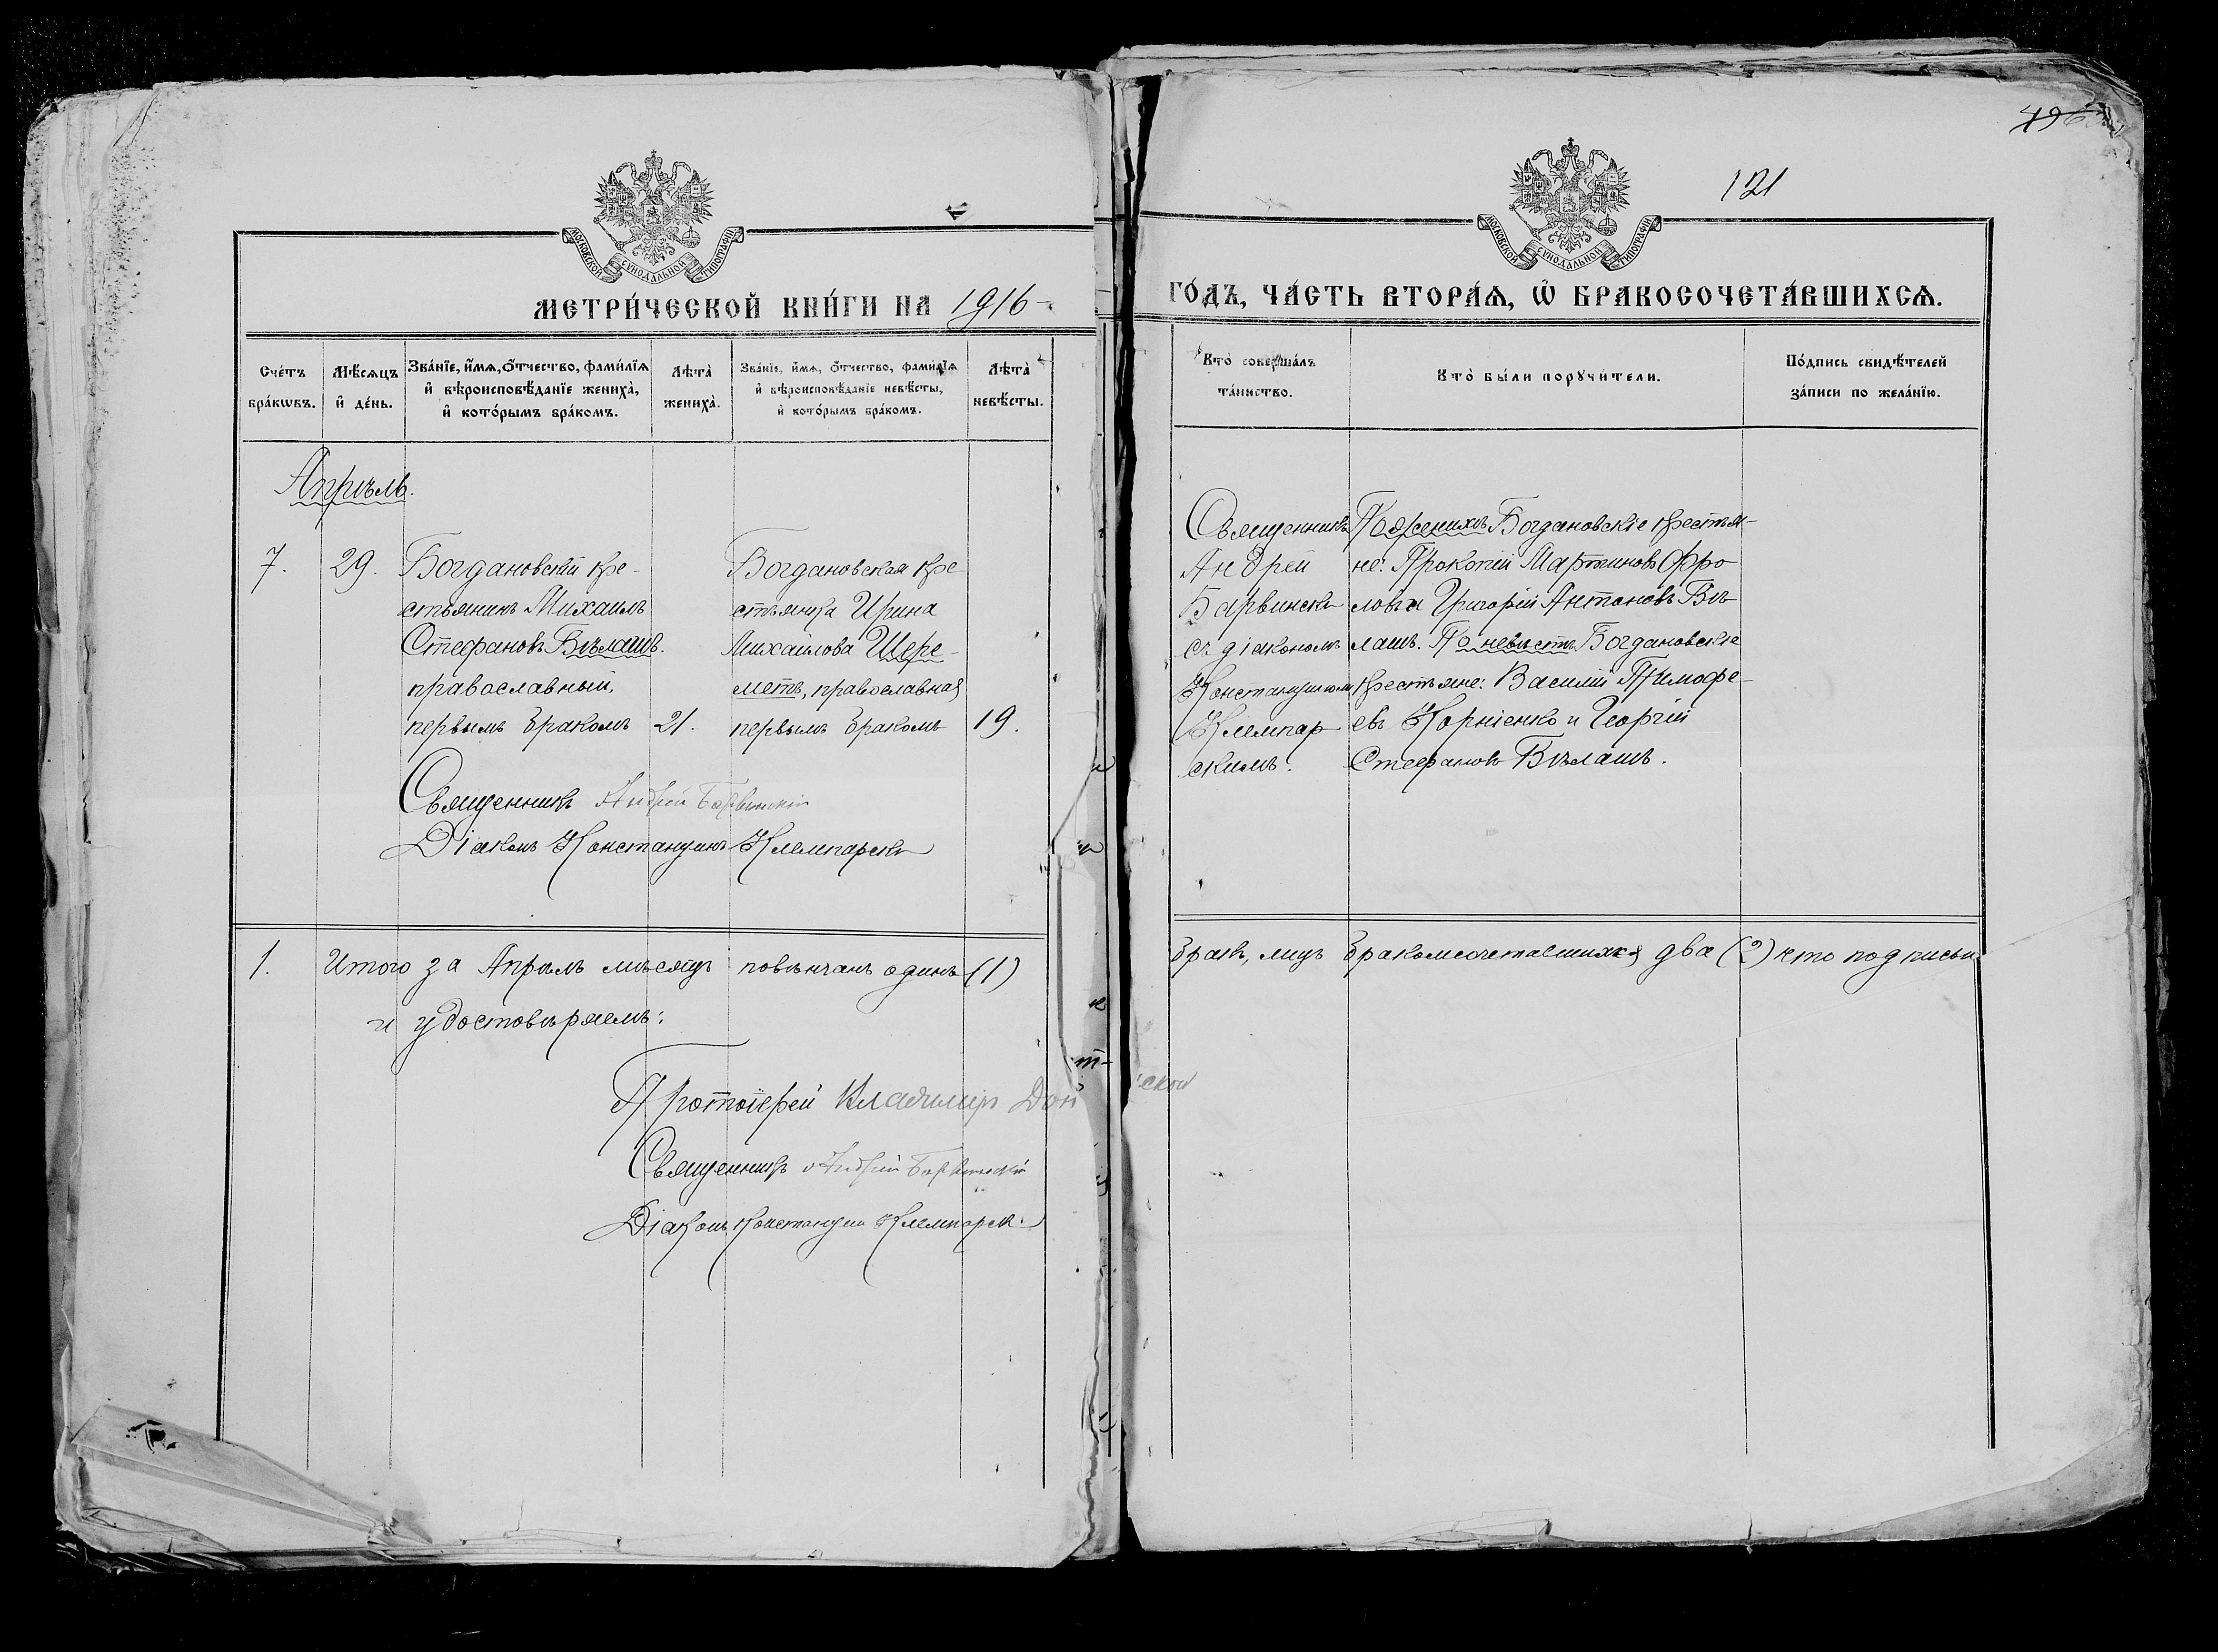 4963
121
МОСКОВСКОЙ СѴНОДАЛЬНОЙ ТИПОГРАФІИ
МОСКОВСКОЙ СѴНОДАЛЬНОЙ ТИПОГРАФІИ
МЕТРИ́ЧЕСКОЙ КНИ́ГИ НА 1916
ГО́ДЪ, ЧА́СТЬ ВТОРА́Ѧ, Ѡ҆ БРАКОСОЧЕТА́ВШИХСѦ.
Сче́тъ бра́кѡвъ.
Мѣ́сѧцъ и҆ де́нь.
Зва́нїе, и҆́мѧ, ѻ҆́тчество, фами́лїѧ и҆ вѣроисповѣ́данїе жениха̀, и҆ кото́рымъ бра́комъ.
Лѣта̀ жениха̀.
Зва́нїе, и҆́мѧ, ѻ҆́тчество, фами́лїѧ и҆ вѣроисповѣ́данїе невѣ́сты, и҆ кото́рымъ бра́комъ.
Лѣта̀ невѣ́сты.
Кто̀ соверша́лъ та́инство.
Кто̀ бы́ли порꙋчи́тели.
По́дпись свидѣ́телей за́писи по жела́нїю.
Апрѣль.
7.
29.
Богдановскій кре-
стьянинъ Михаилъ
Стефановъ Бѣлашъ.
православный,
первымъ бракомъ
21.
Богдановская кре-
стьянка Ирина
Михаилова Шере-
метъ, православная
первымъ бракомъ
19.
Священникъ
Андрей
Барвинскій
съ діакономъ
Константиномъ
Клемпар
скимъ.
По женихѣ Богдановскіе крестья-
не: Прокопій Мартиновъ Фро
ловъ и Григорій Антоновъ Бѣ
лашъ. По невѣстѣ Богдановскіе
крестьяне: Василій Тимофе-
евъ Корніенко и Георгій
Стефановъ Бѣлашъ.
Священникъ Андрей Барвинскій
Діаконъ Константинъ Клемпарскій
1.
Итого за Апрѣль мѣсяцъ повѣнчанъ одинъ (1)
бракъ, лицъ бракомсочетавшихся два (2) что подписью
и удостовѣряемъ:
Протоіерей Владиміръ
Священникъ Андрей Барвинскій
Діаконъ Константинъ Клемпарскій